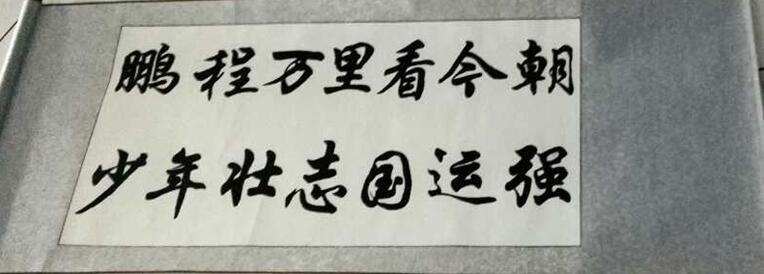 鹏程万里看今朝
少年壮志国运强